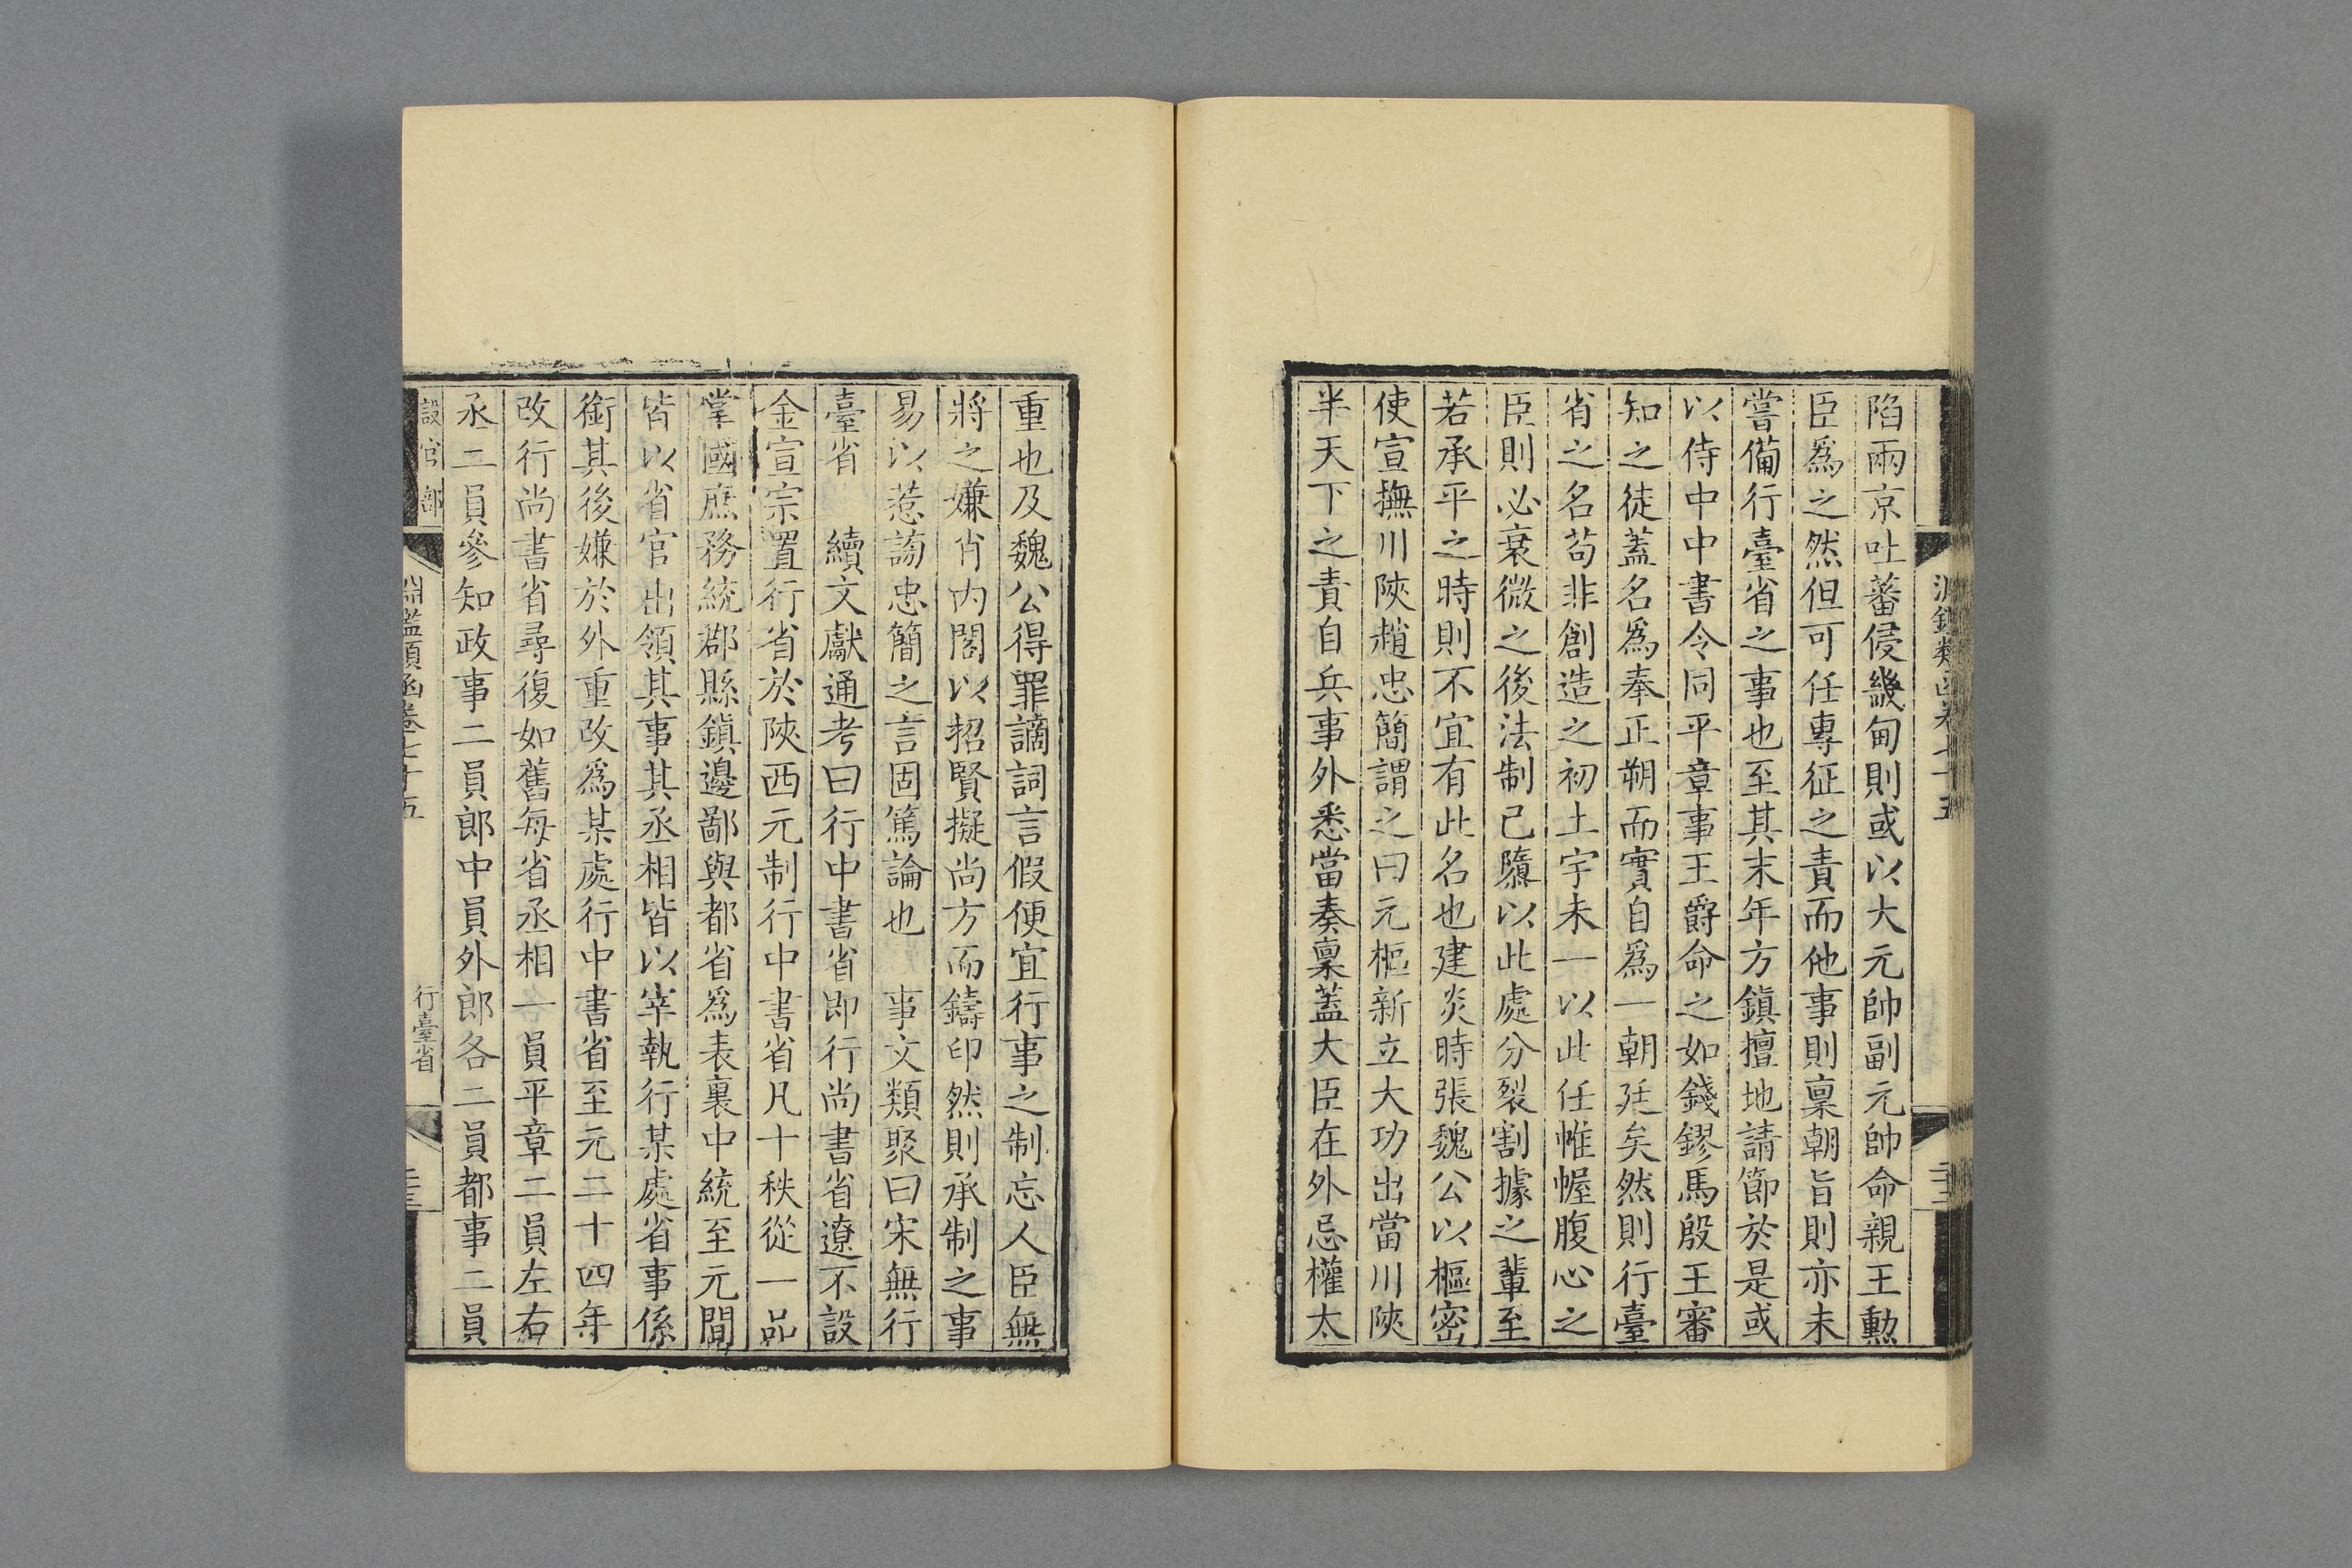 陷兩京吐蕃侵畿甸則或以大元帥副元帥命親王勲
臣爲之然但可任專征之責而他事則稟朝旨則亦未
嘗備行臺省之事也至其末年方鎮擅地請節於是或
以侍中中書令同平章事王爵命之如錢鏐馬殷王審
知之徒蓋名爲奉正朔而實自爲一朝廷矣然則行臺
省之名苟非創造之初土宇未一以此任帷幄腹心之
臣則必衰微之後法制已隳以此處分裂割據之輩至
若承平之時則不宜有此名也建炎時張魏公以樞密
使宣撫川陜趙忠簡謂之曰元樞新立大功出當川陜
半天下之責自兵事外悉當奏稟蓋大臣在外忌權太
重也及魏公得罪謫詞言假便宜行事之制忘人臣無
將之嫌肖內閣以招賢擬尚方而鑄印然則承制之事
易以惹謗忠簡之言固篤論也　事文類聚曰宋無行
臺省　續文獻通考曰行中書省即行尚書省遼不設
金宣宗置行省於陜西元制行中書省凡十秩從一品
掌國庶務統郡縣鎮邊鄙與都省爲表裏中統至元間
皆以省官出領其事其丞相皆以宰執行某處省事係
銜其後嫌於外重改爲某處行中書省至元二十四年
改行尚書省尋復如舊每省丞相一員平章二員左右
丞二員參知政事二員郎中員外郎各二員都事二員
設官部
淵鑑類函卷七十五
行臺省